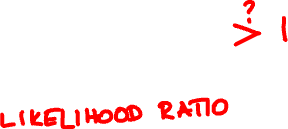 ?
> 1
LIKELIHOOD RATIO